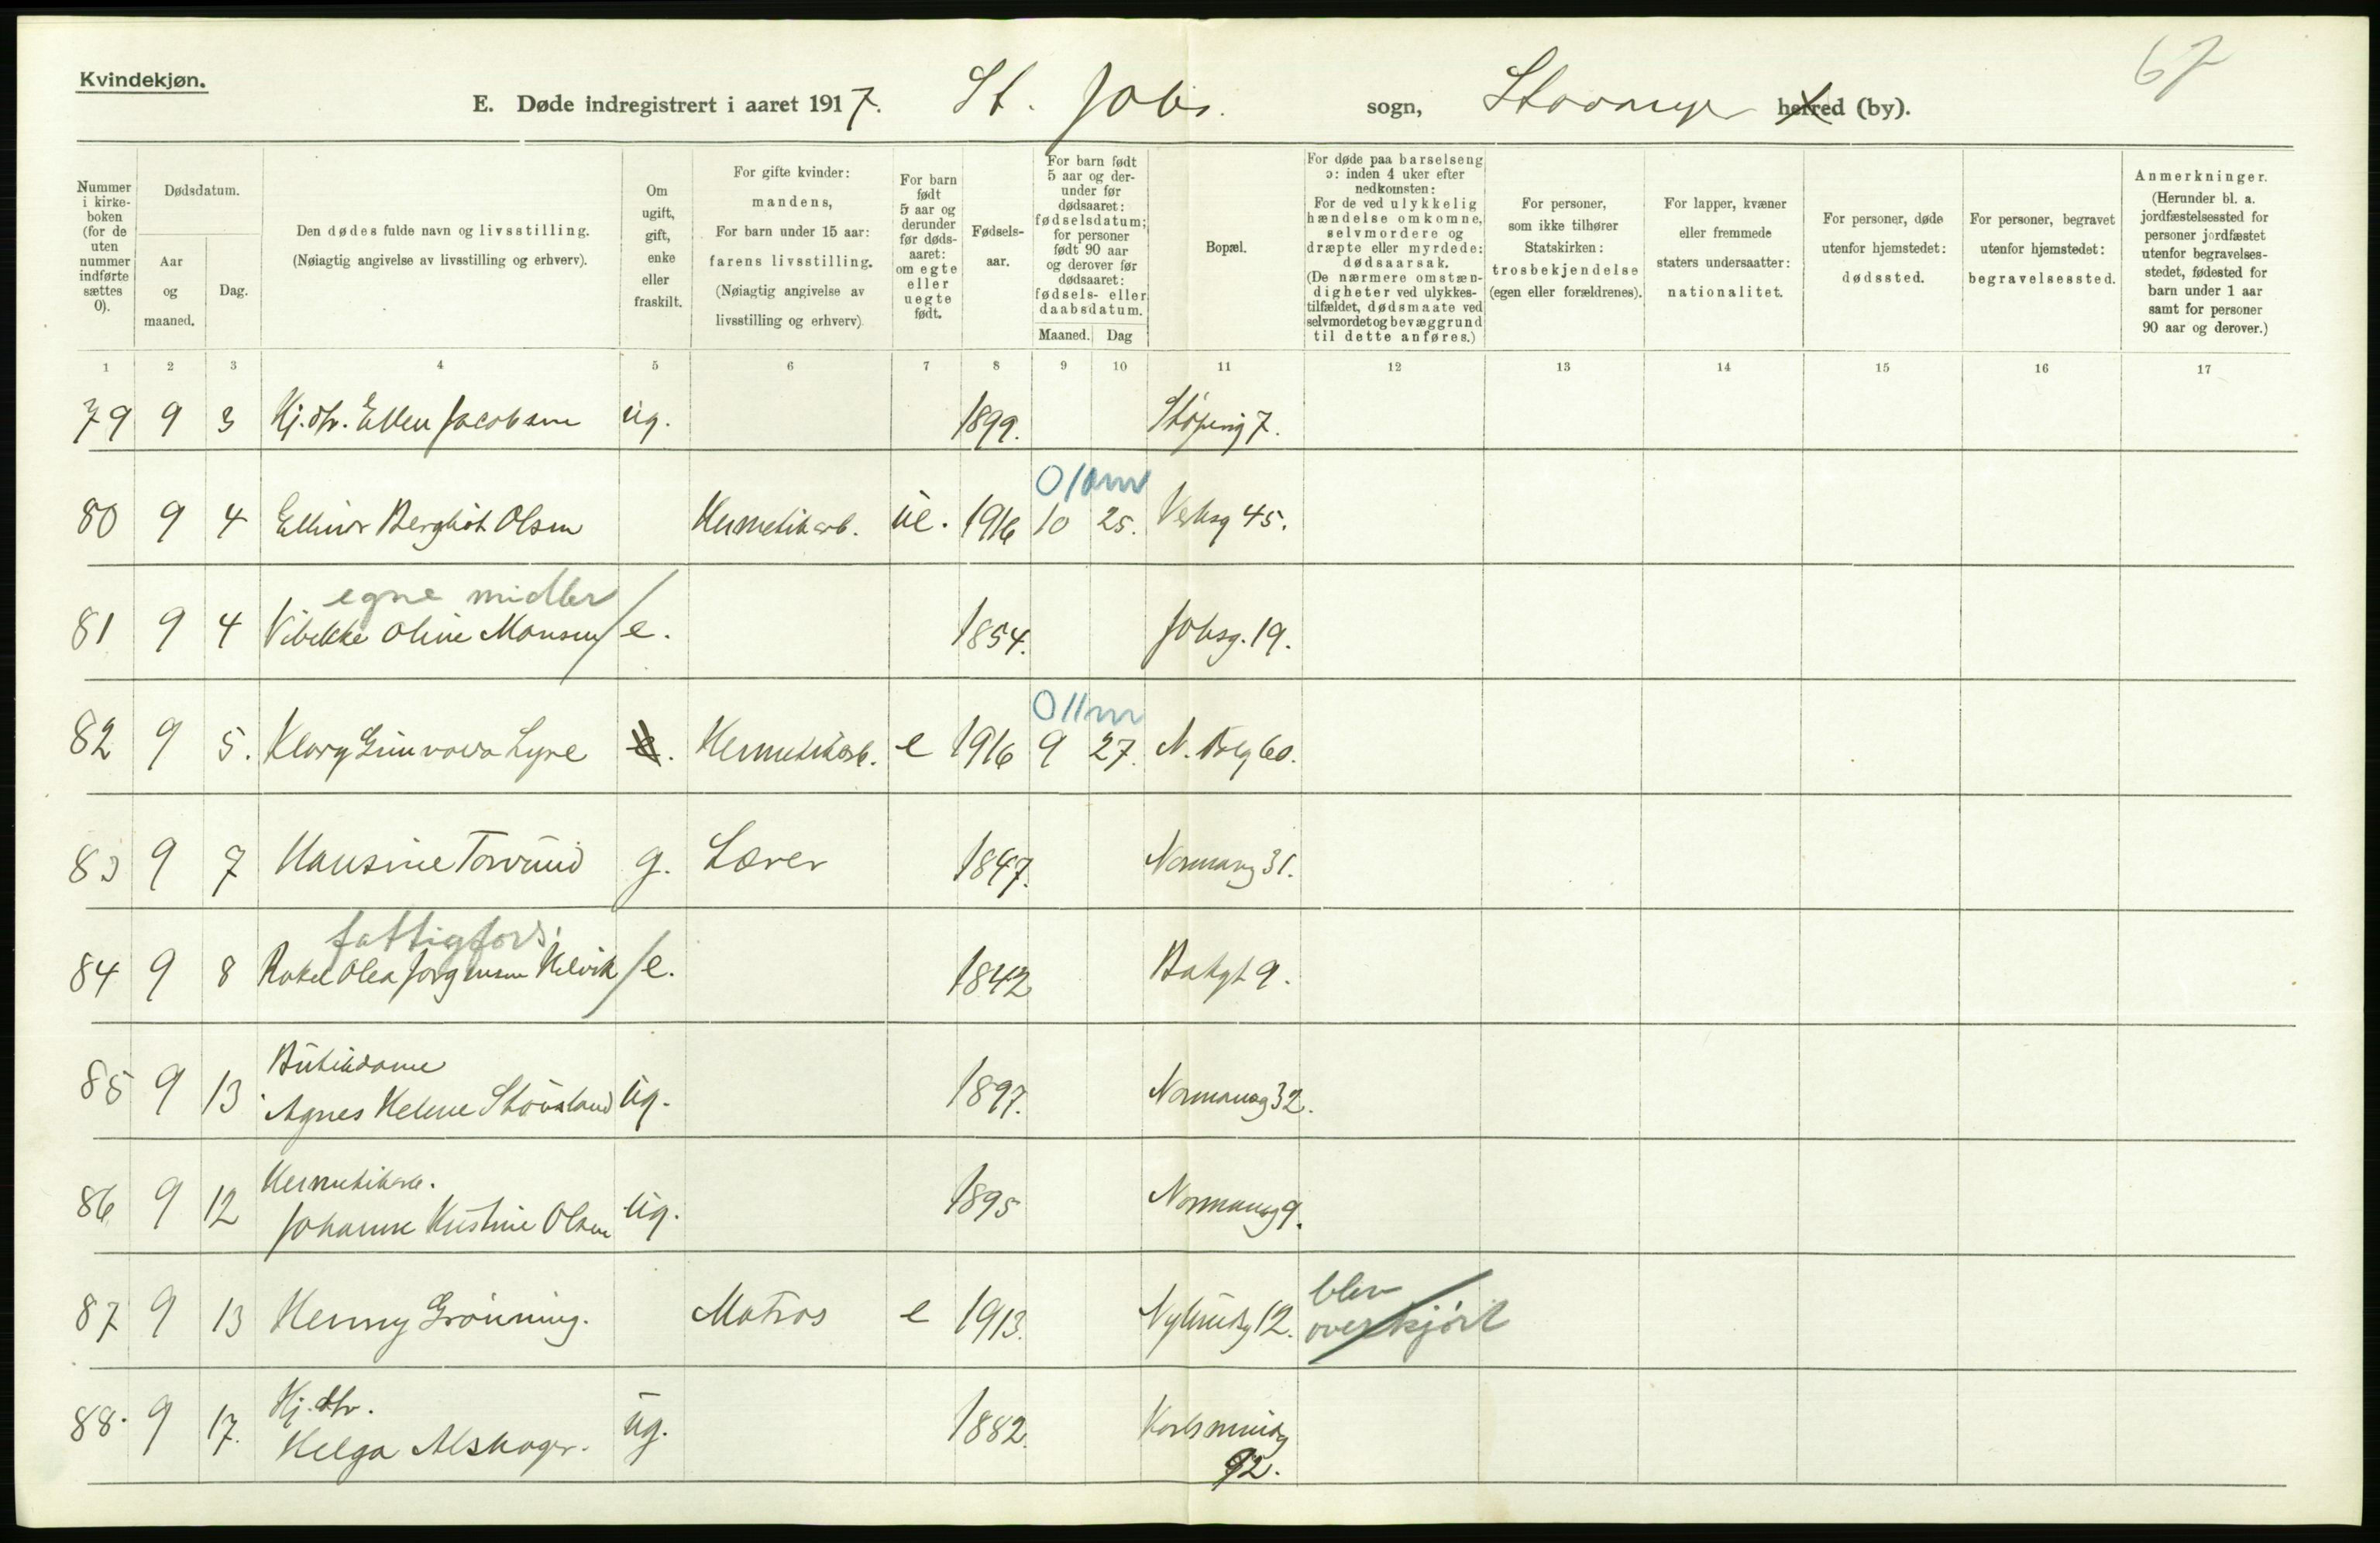 Kvindekjøn.
67
E. Døde indregistrert i aaret 1917. St. Johs. sogn, Stavanger herred (by).
Nummer i kirke-boken (for de uten nummer indførte sættes 0).
Dødsdatum.
Aar og maaned.
Dag.
Den dødes fulde navn og livsstilling.
(Nøiagtig angivelse av livsstilling og erhverv).
Om ugift, gift, enke eller fraskilt.
For gifte kvinder: mandens,
For barn under 15 aar: farens livsstilling.
(Nøiagtig angivelse av livsstilling og erhverv)
For barn født 5 aar og derunder før døds-aaret: om egte eller uegte født.
Fødsels-aar.
For barn født 5 aar og der-under før dødsaaret: fødselsdatum; for personer født 90 aar og derover før dødsaaret: fødsels- eller daabsdatum.
Maaned. Dag
Bopæl.
For døde paa barselseng ɔ: inden 4 uker efter nedkomsten:
For de ved ulykkelig hændelse omkomne, selvmordere og dræpte eller myrdede: dødsaarsak.
(De nærmere omstæn-digheter ved ulykkes-tilfældet, dødsmaate ved selvmordet og bevæggrund til dette anføres.)
For personer, som ikke tilhører Statskirken: trosbekjendelse (egen eller forældrenes).
For lapper, kvæner eller fremmede staters undersaatter: nationalitet.
For personer, døde utenfor hjemstedet: dødssted.
For personer, begravet utenfor hjemstedet: begravelsessted.
Anmerkninger.
(Herunder bl. a. jordfæstelsessted for personer jordfæstet utenfor begravelses-stedet, fødested for barn under 1 aar samt for personer 90 aar og derover.)
1 2 3 4 5 6 7 8 9 10 11 12 13 14 15 16 17
79 9 3 Hj. dtr. Ellen Jacobsen ug. 1899. Støperig 7.
0 10 m
80 9 4 Ellinor Bergliot Olsen Hermetikarb. ue. 1916 10 25. Verksg 45.
egne midler
81 9 4 Vibekke Oline Monsen e. 1854. Johsg. 19.
0 11 m
82 9 5. Klary Gunvora Lyse Hermetikarb. e 1916 9 27. N. Dalg 60.
83 9 7 Hansine Torvund g. Lærer 1847. Normansg 31.
fattigfors.
84 9 8 Rakel Olea Jørgensen Helvik e. 1842 Bakgt 9.
Butikdame
85 9 13 Agnes Helene Stousland ug. 1897. Normansg 32.
Hermetikarb.
86 9 12 Johanne Kristine Olsen ug. 1895 Normansg 9.
blev
87 9 13 Henny Grønning. Matros e 1913. Nylundsg 12. overkjørt
Hj. dtr.
88. 9 17. Helga Alskager. ug. 1882. Karlsmindeg
92.